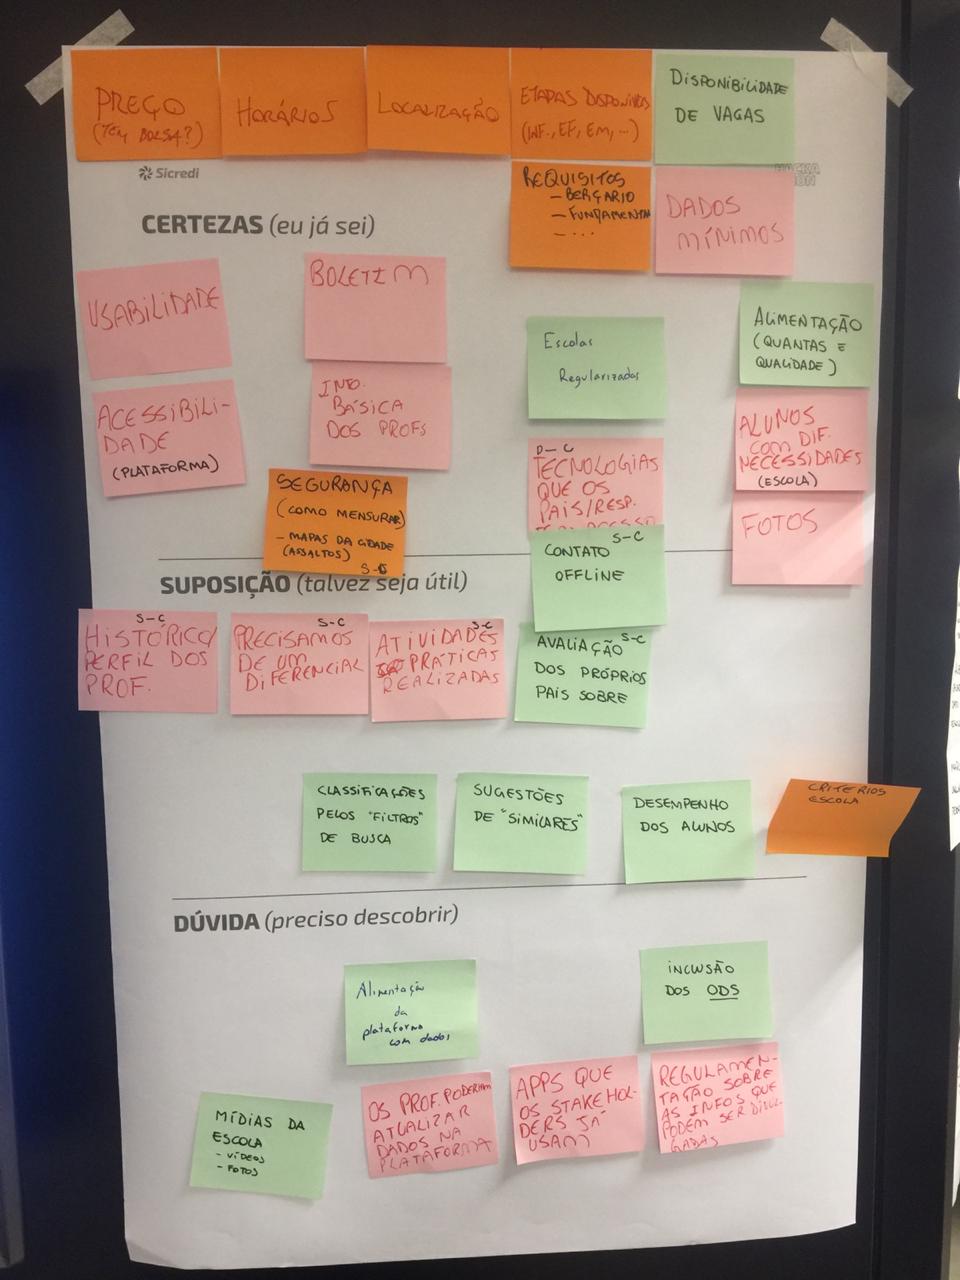 PREÇO
(TEM BOLSA?)
HORÁRIOS
LOCALIZAÇÃO
ETAPAS DISPONÍVEIS
(INF., EF, EM, ...)
DISPONIBILIDADE
DE VAGAS
Sicredi
HACKA
REQUISITOS
- BERÇARIO
- FUNDAMENTAL
- ...
DADOS
MÍNIMOS
CERTEZAS (eu já sei)
USABILIDADE
BOLETIM
Escolas
Regularizadas
ALIMENTAÇÃO
(QUANTAS E
QUALIDADE)
ACESSIBILI-
DADE
(PLATAFORMA)
INFO.
BÁSICA
DOS PROFS
D-C
TECNOLOGIAS
QUE OS
PAIS/RESP.
ALUNOS
COM DIF.
NECESSIDADES
(ESCOLA)
SEGURANÇA
(COMO MENSURAR)
- MAPAS DA CIDADE
(ASSALTOS)
S-C
FOTOS
S-C
CONTATO
OFFLINE
SUPOSIÇÃO (talvez seja útil)
S-C
HISTÓRICO/
PERFIL DOS
PROF.
S-C
PRECISAMOS
DE UM
DIFERENCIAL
S-C
ATIVIDADES
PRÁTICAS
REALIZADAS
AVALIAÇÃO S-C
DOS PRÓPRIOS
PAIS SOBRE
CLASSIFICAÇÕES
PELOS "FILTROS"
DE BUSCA
SUGESTÕES
DE "SIMILARES"
DESEMPENHO
DOS ALUNOS
CRITERIOS
ESCOLA
DÚVIDA (preciso descobrir)
Alimentação
da
plataforma
com dados
INCLUSÃO
DOS ODS
MÍDIAS DA
ESCOLA
- VÍDEOS
- FOTOS
OS PROF. PODERIAM
ATUALIZAR
DADOS NA
PLATAFORMA
APPS QUE
OS STAKEHOL-
DERS JÁ
USAM
REGULAMEN-
TAÇÃO SOBRE
AS INFOS QUE
PODEM SER DIVUL-
GADAS